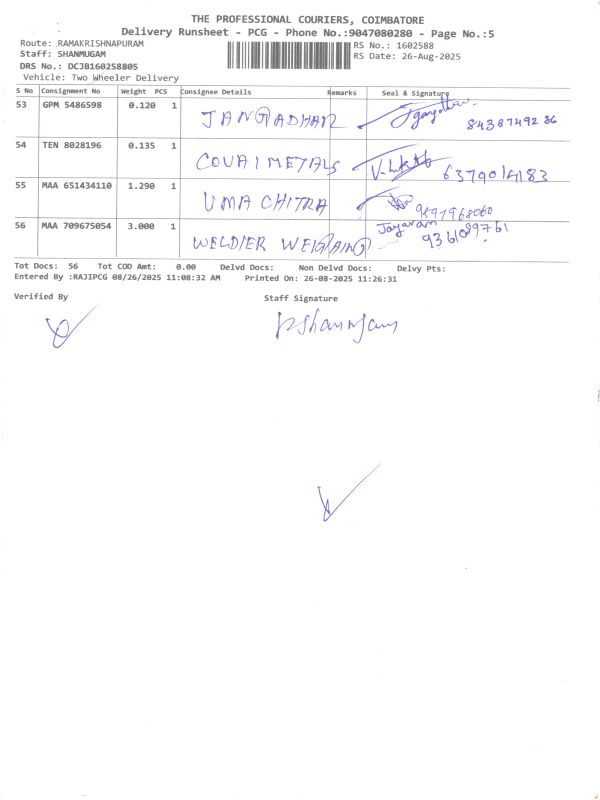 THE PROFESSIONAL COURIERS, COIMBATORE
Delivery Runsheet - PCG - Phone No.:9047080280 - Page No.:5
Route: RAMAKRISHNAPURAM
Staff: SHANMUGAM
DRS No.: DCJB160258805
Vehicle: Two Wheeler Delivery
RS No.: 1602588
RS Date: 26-Aug-2025
S No Consignment No Weight PCS Consignee Details Remarks Seal & Signature
53 GPM 5486598 0.120 1 84387492 86
54 TEN 8028196 0.135 1 COVAI METALS 6379014183
55 MAA 651434110 1.290 1 UMA CHITRA
56 MAA 709675054 3.000 1 Jayaram
Tot Docs: 56 Tot COD Amt: 0.00 Delvd Docs: Non Delvd Docs: Delvy Pts:
Entered By :RAJIPCG 08/26/2025 11:08:32 AM Printed On: 26-08-2025 11:26:31
Verified By Staff Signature